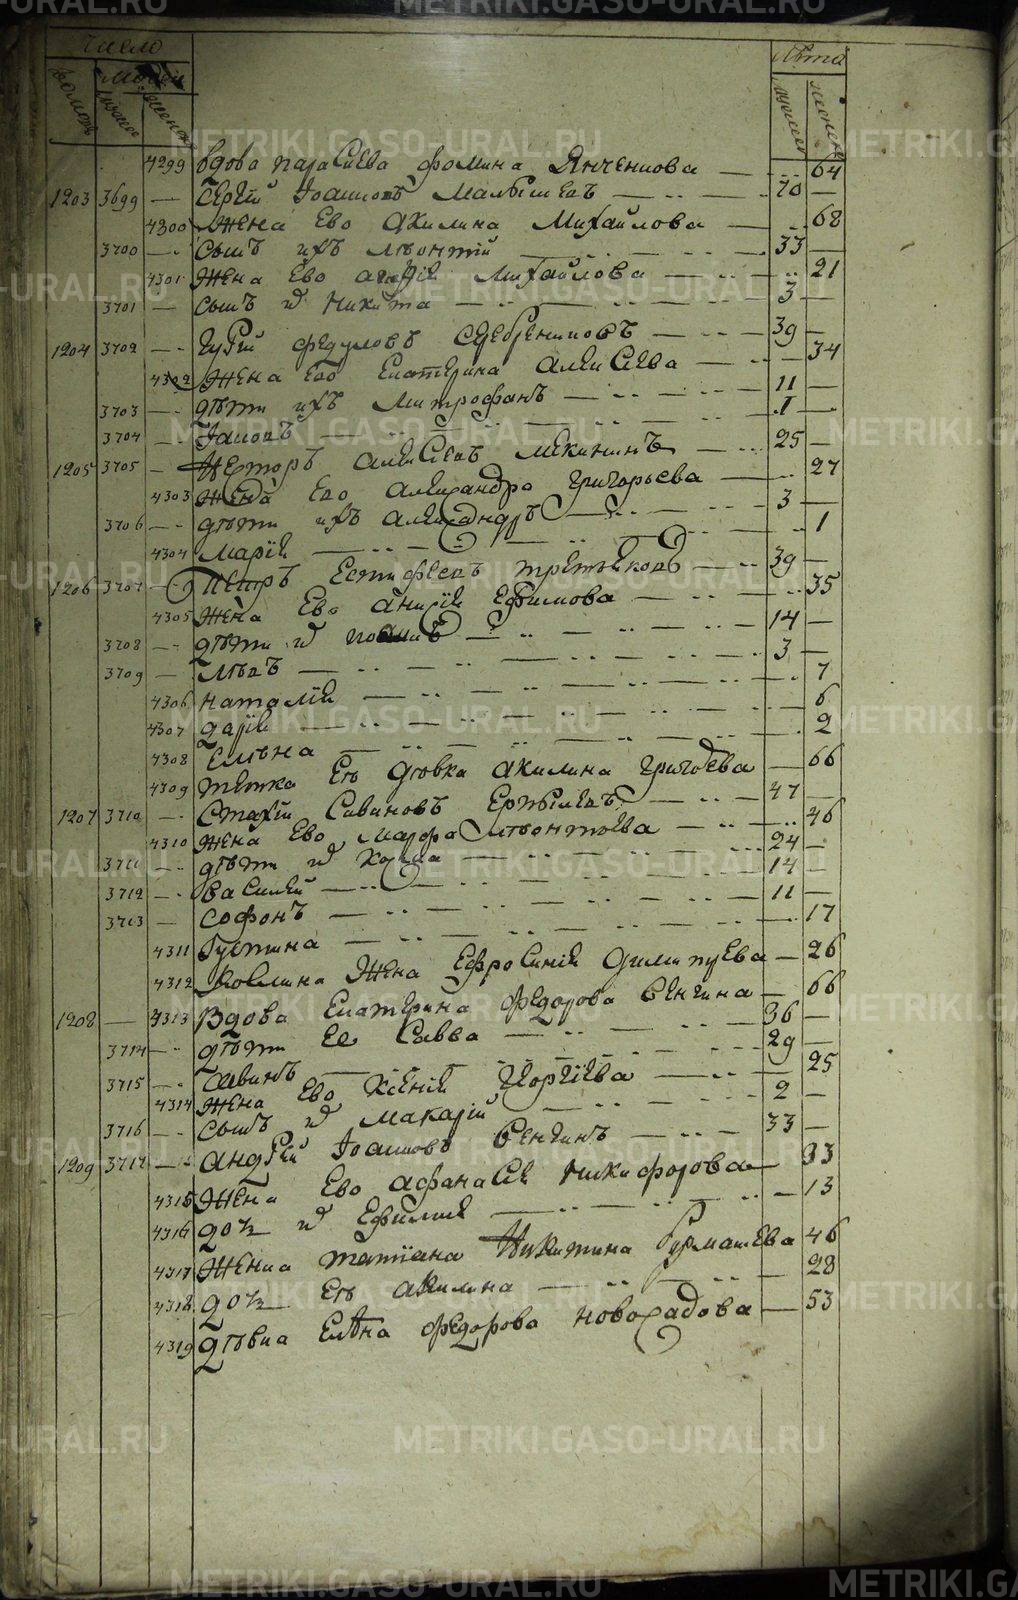 METRIKI.GASO-URAL.RU
Число
Лѣта
домовъ
людей
мужеск
женск
4299 вдова параскева фомина Янченкова — 64
1203 3699 — Сергiй Iоанновъ Малышевъ — 70 —
4300 Жена Ево Акилина Михайлова — 68
3700 — Сынъ ихъ Леонтiй — 33 —
4301 Жена Ево агафiя Михайлова — 21
3701 — сынъ и Никита — 3 —
1204 3702 — Гурiй федуловъ Серебрениковъ — 39 —
4302 Жена Ево Екатерина Алексiева — 34
3703 — дѣти ихъ Митрофанъ — 11 —
3704 — Iаковъ — 1 —
1205 3705 — Несторъ Алексiевъ Мекининъ — 25 —
4303 Жена Ево Александра григорьева — 27
3706 — дѣти ихъ Александръ — 3 —
4304 Марiя — 1
1206 3707 — Петръ Естифеевъ третьяковъ — 39 —
4305 Жена Ево Анисiя Ефимова — 35
3708 — дѣти и — 14 —
3709 — Левъ — 3 —
4306 Наталiя — 7
4307 Дарiя — 6
4308 Елена — 2
4309 тетка Ег девка Акилина григорьева — 66
1207 3710 — Стахiй Савиновъ — 47 —
4310 Жена Ево Марфа Леонтьева — 46
3711 — дѣти и Козма — 24 —
3712 — Василей — 14 —
3713 — Софонъ — 11 —
4311 Густина — 17
4312 Козмина Жена Ефросинiя Филипуева — 26
1208 — 4313 Вдова Екатерина федорова Сенгина — 66
3714 — дѣти Ее Савва — 36 —
3715 — Савинъ — 29 —
4314 Жена Ево Ксенiя Георгiева — 25
3716 — сынъ и Макарiй — 2 —
1209 3717 — андрей Iоанновъ Сенгинъ — 33 —
4315 Жена Ево афанасiя Никифорова — 33
4316 дочь и Ефимiя — 13
4317 Женка татiана Никитина Гурмашева 46
4318 дочь Ег акилина — 28
4319 девка Елена федорова новосадова — 53